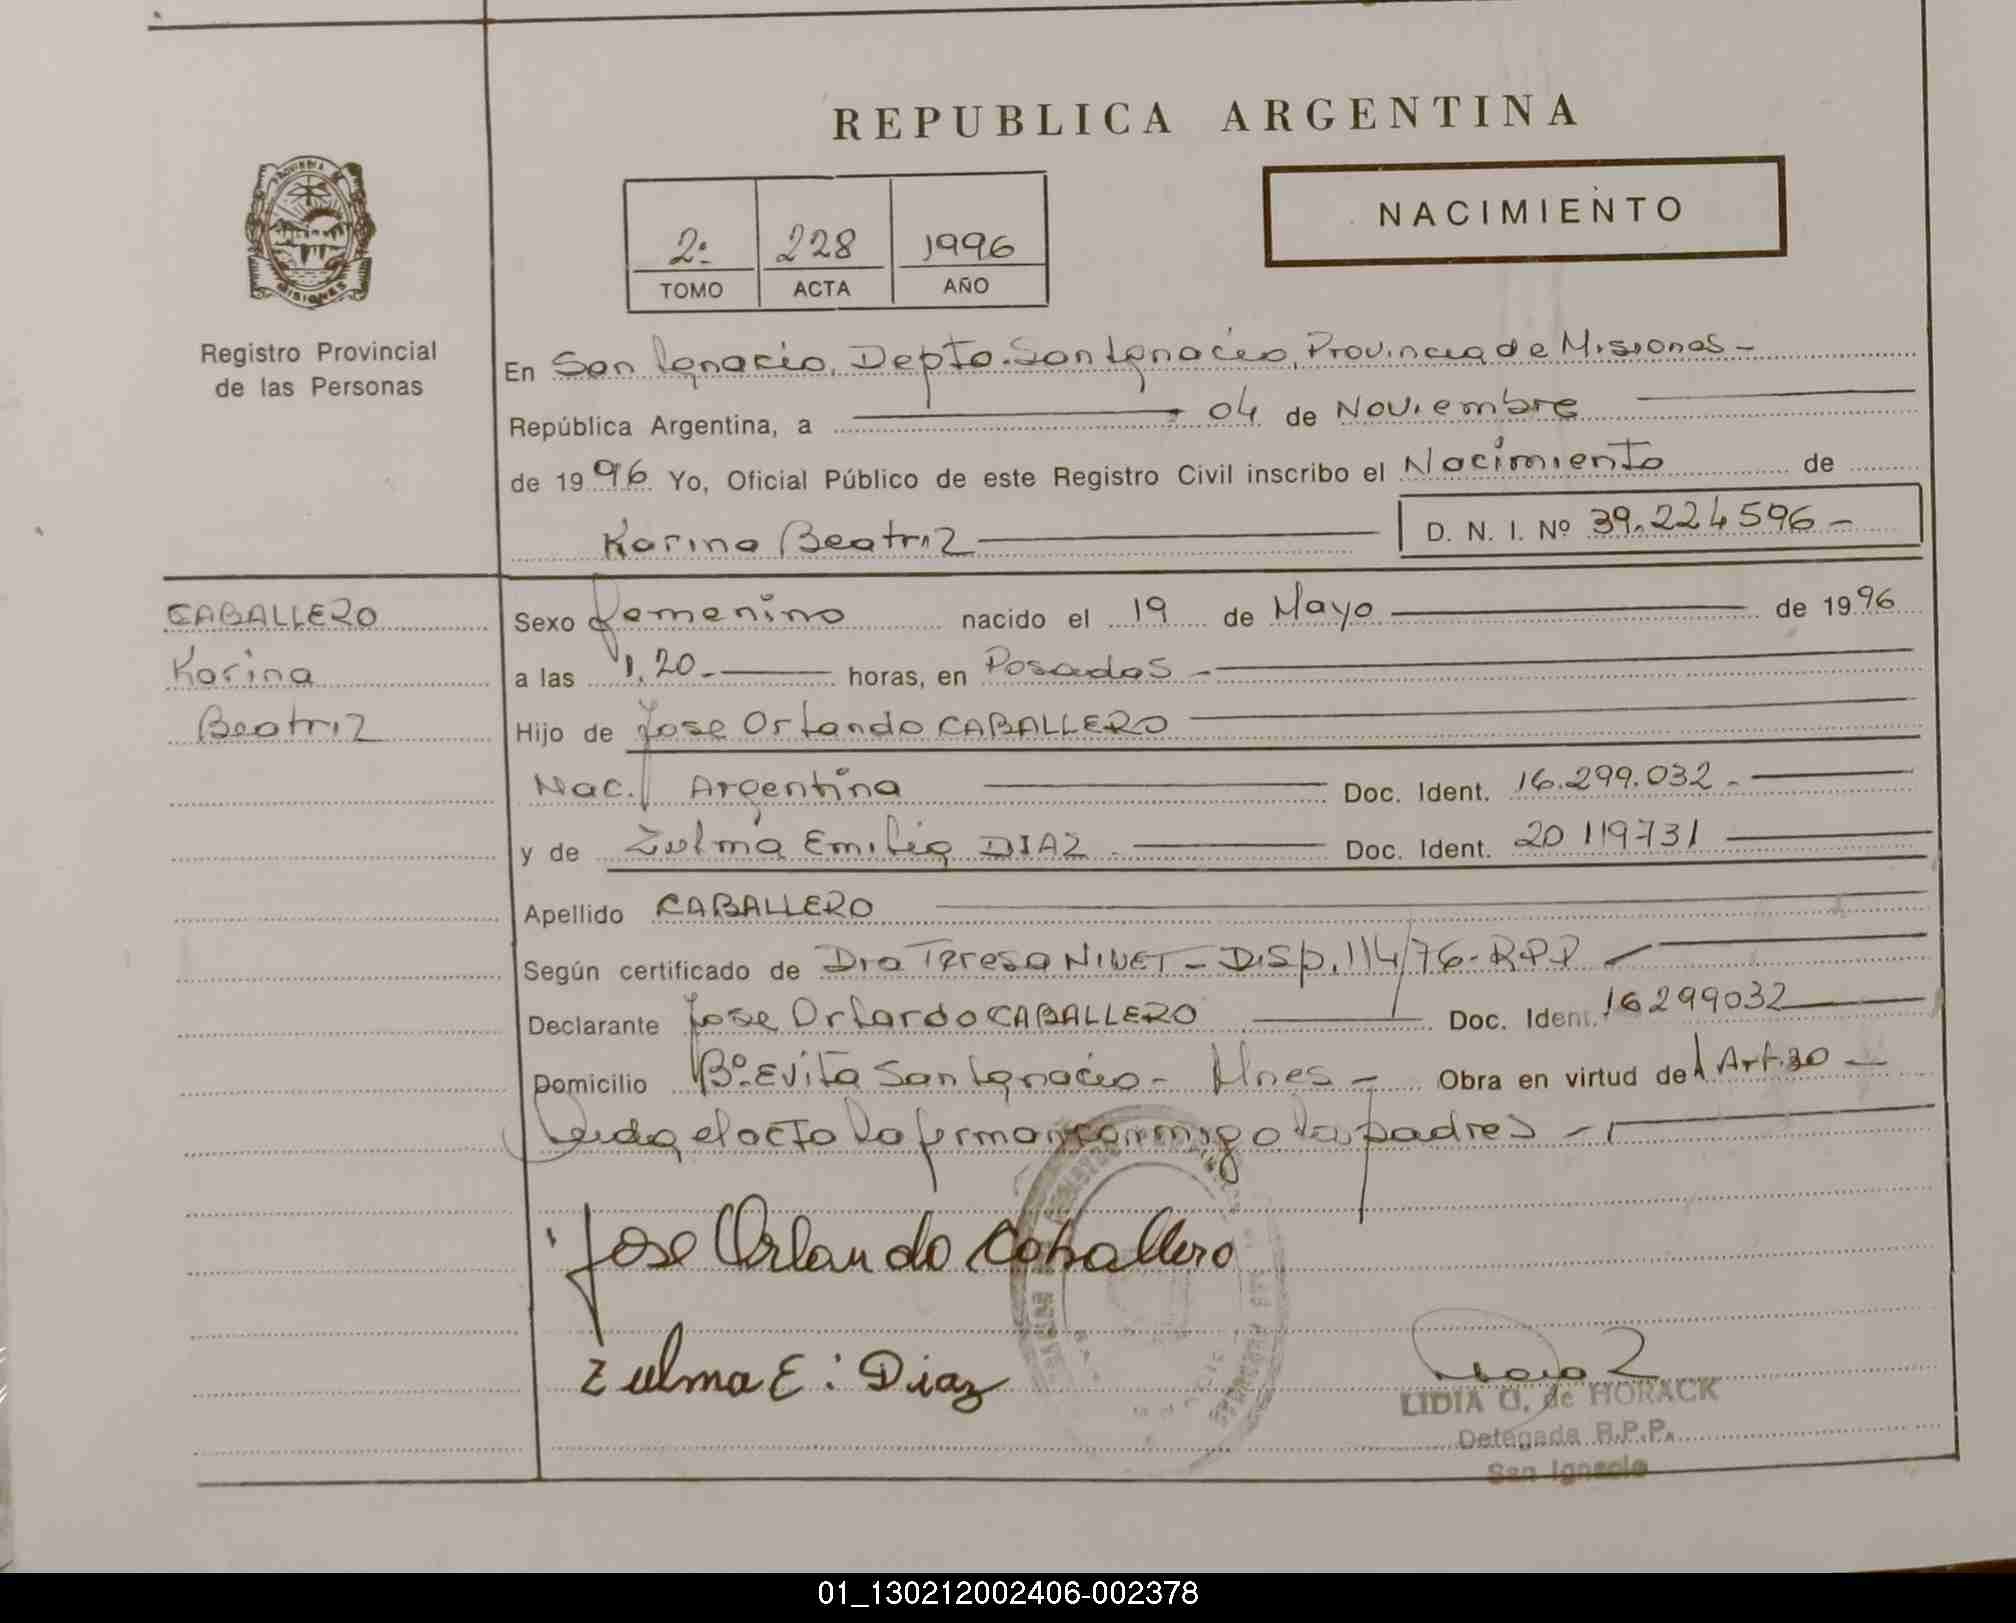 REPUBLICA ARGENTINA
NACIMIENTO
2º 228 1996
TOMO ACTA AÑO
PROVINCIA DE
MISIONES
Registro Provincial
de las Personas
En San Ignacio, Depto. San Ignacio, Provincia de Misiones -
República Argentina, a 04 de Noviembre
de 1996 Yo, Oficial Público de este Registro Civil inscribo el Nacimiento de
Karina Beatriz D. N. I. Nº 39.224596 -
CABALLERO
Karina
Beatriz
Sexo femenino nacido el 19 de Mayo de 1996
a las 1,20 - horas, en Posadas -
Hijo de Jose Orlando CABALLERO
Nac. Argentina Doc. Ident. 16.299.032 -
y de Zulma Emilia DIAZ Doc. Ident. 20 119731
Apellido CABALLERO
Según certificado de Dra Teresa NIVET - Disp. 114/76 - RPP
Declarante Jose Orlando CABALLERO Doc. Ident. 16299032
Domicilio Bº. Evita San Ignacio - Mnes - Obra en virtud del Art. 30 -
Leida el acto la firman conmigo los padres -
Jose Orlando Caballero
Zulma E: Diaz
LIDIA G. de HORACK
Delegada R.P.P.
San Ignacio
01_130212002406-002378